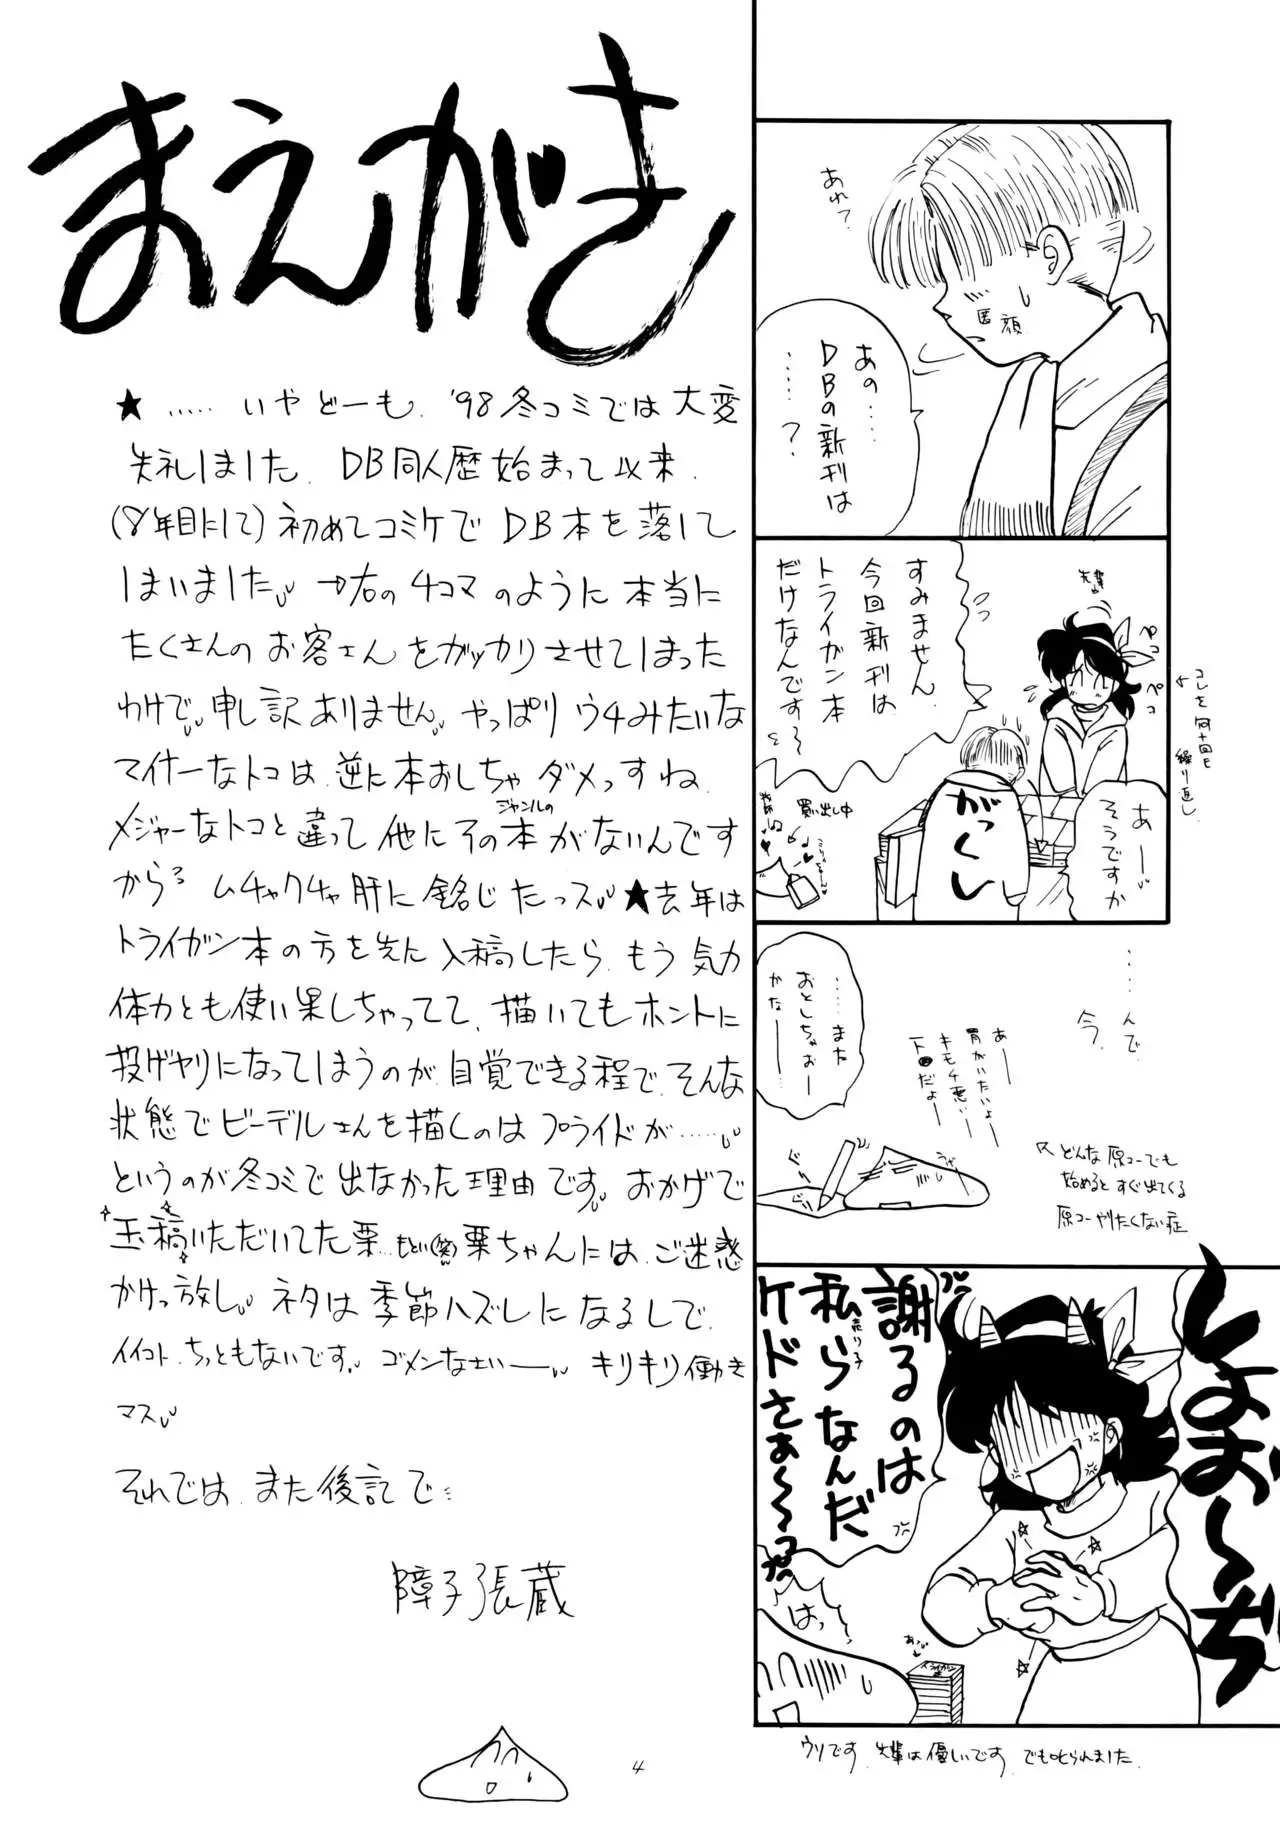 まえがき
★ …… いやどーも、'98冬コミでは大変
失礼しました。DB同人歴始まって以来、
(8年目にして)初めてコミケでDB本を落して
しまいました。→右の4コマのように本当に
たくさんのお客さんをガッカリさせてしまった
わけで、申し訳ありません。やっぱりウチみたいな
マイナーなトコは逆に本おしちゃダメっすね。
メジャーなトコと違って他にそのジャンルの本がないんです
から? ムチャクチャ肝に銘じたっス。★去年は
トライガン本の方を先に入稿したら、もう気力
体力とも使い果しちゃってて、描いてもホントに
投げヤリになってしまうのが自覚できる程で、そんな
状態でビーデルさんを描くのはプライドが……。
というのが冬コミで出なかった理由です。おかげで
玉稿いただいてた栗…もとい(笑)栗ちゃんには、ご迷惑
かけっ放し。ネタは季節ハズレになるしで、
イイコト、ちっともないです。ゴメンなさいー。キリキリ働き
マス。
それでは、また後記で…
障子張蔵
4
あれ?
匿顔
あの……
DBの新刊は
……?
すみません、
今回新刊は
トライガン本
だけなんです〜
先輩
ペコ
ペコ
コレを何十回も
繰り返し
あー。
そうですか
がっくし
買い出し中
……んで、
今、
……また
おとしちゃお
かなーー
あー
胃がいたいよー
キモチ悪いー
ぐりぐり
どんな原コーでも
始めると すぐ出てくる
原コーやりたくない症
しょお〜ぢ
謝るのは
私ら売り子なんだ
ケドさぁ〜〜っ
はっ
トライガン本
ウソです 先輩は優しいです。でも叱られました